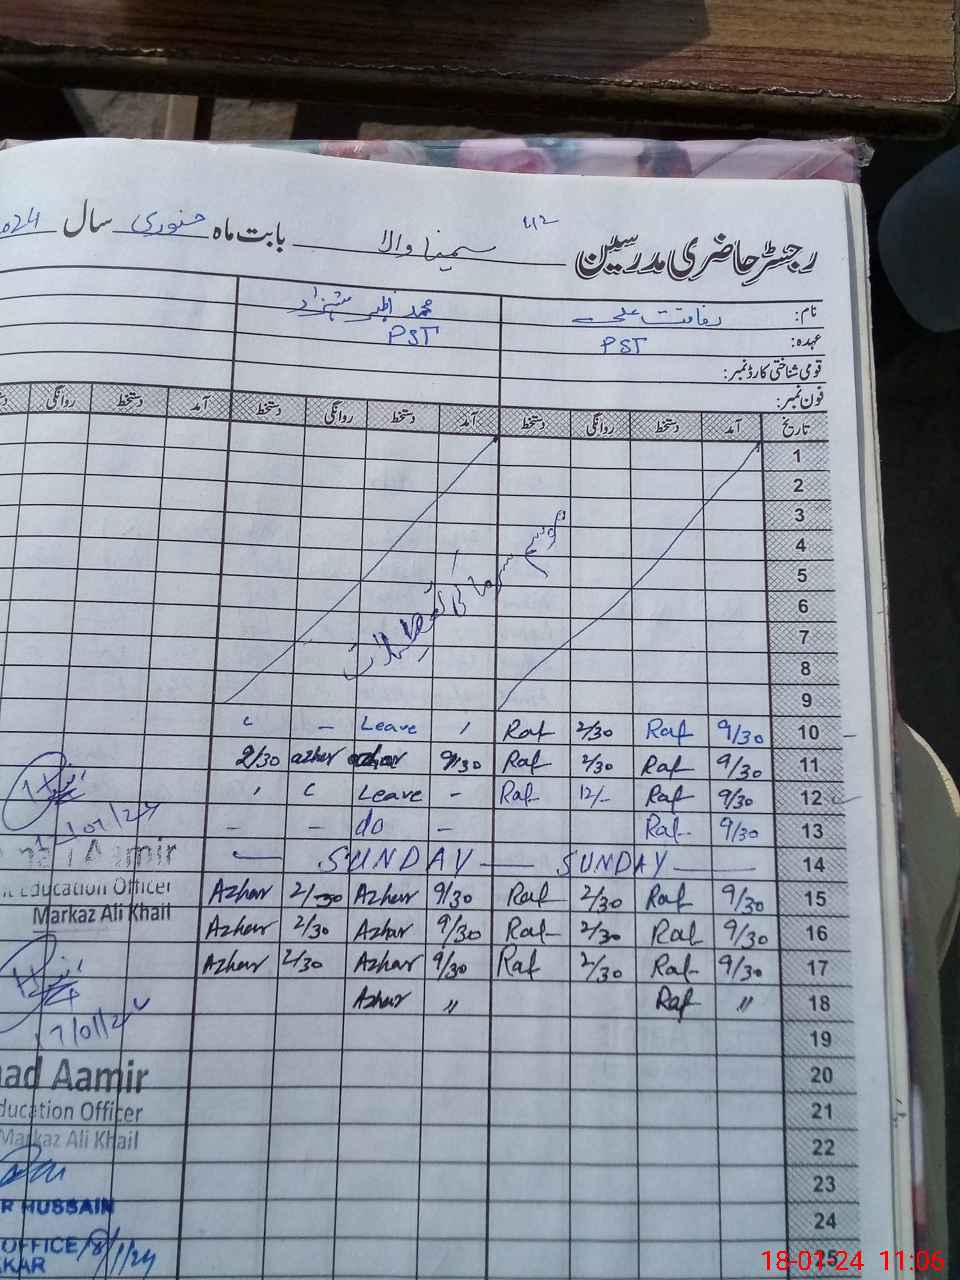 رجسٹر حاضری مدرسین سمینا والا بابت ماہ جنوری سال 2024
نام: رفاقت علی محمد اظہر شہزاد
عہدہ: PST PST
قومی شناختی کارڈ نمبر:
فون نمبر:
تاریخ آمد دستخط روانگی دستخط آمد دستخط روانگی دستخط آمد دستخط روانگی
1
2
3
4
5
6
7
8
9
موسم سرما کی تعطیلات
10 9/30 Raf 2/30 Raf Leave
11 9/30 Raf 2/30 Raf 9/30 azhar azhar 2/30
12 9/30 Raf 12/- Raf - Leave
13 9/30 Raf - do - -
14 SUNDAY SUNDAY
15 9/30 Raf 2/30 Raf 9/30 Azhar 2/30 Azhar
16 9/30 Raf 2/30 Raf 9/30 Azhar 2/30 Azhar
17 9/30 Raf 2/30 Raf 9/30 Azhar 2/30 Azhar
18 〃 Raf 〃 Azhar
19
20
21
22
23
24
25
Aamir
Education Officer
Markaz Ali Khail
17/01/24
ad Aamir
ducation Officer
Markaz Ali Khail
R HUSSAIN
OFFICE 18/1/24
KAR
18-01-24 11:06